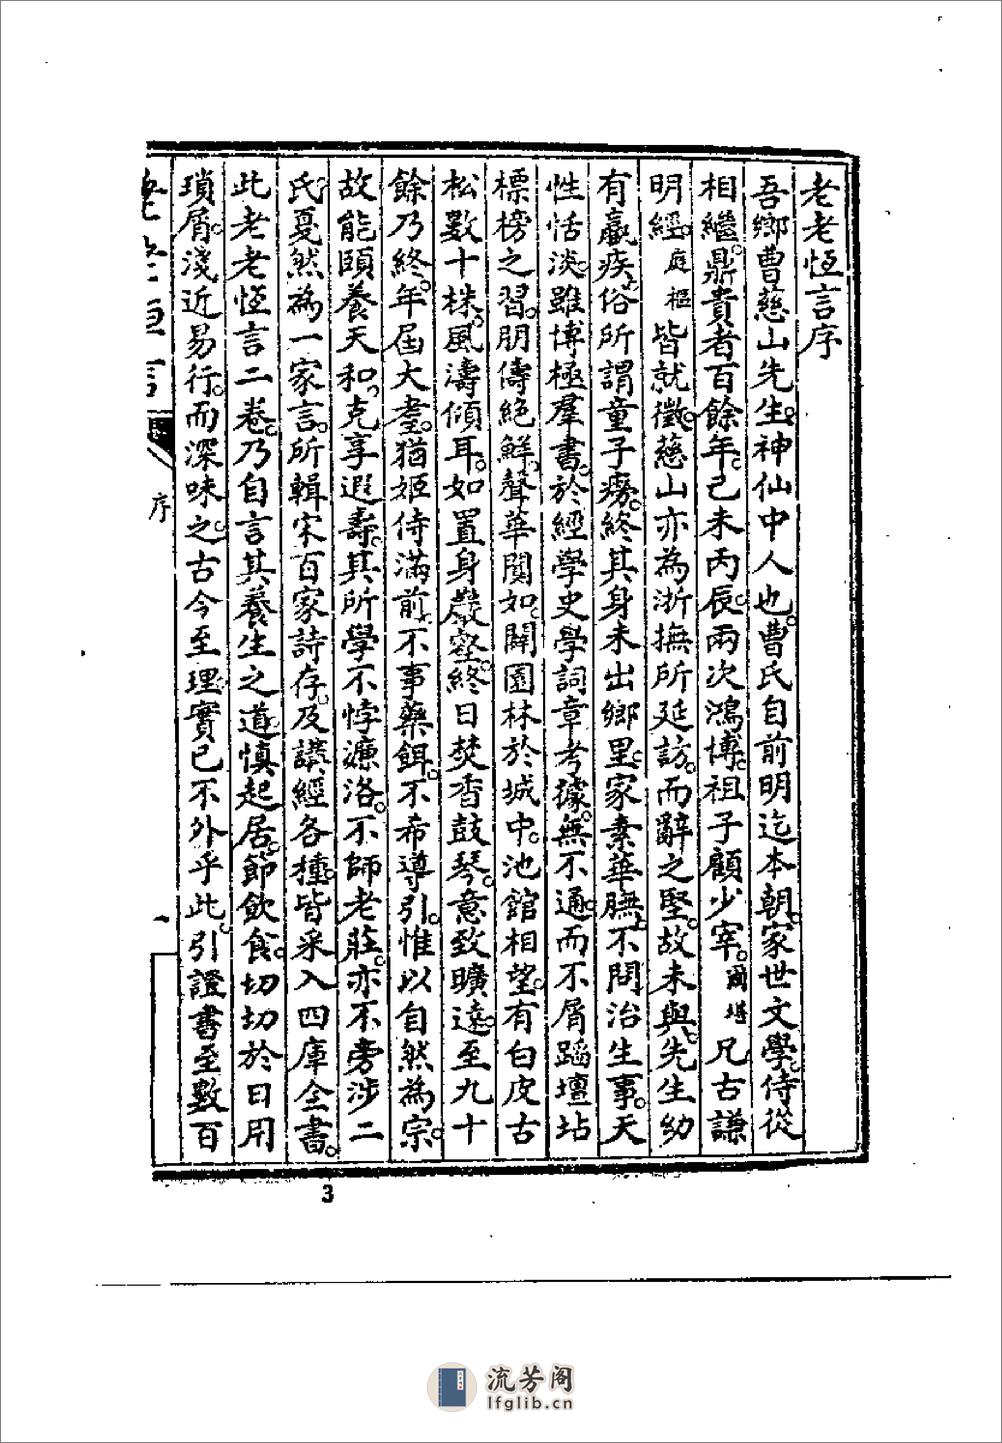 老老恆言序
吾鄉曹慈山先生。神仙中人也。曹氏自前明迄本朝。家世文學。侍從
相繼。鼎貴者百餘年。己未丙辰。兩次鴻博。祖子顧少宰。爾堪 凡古謙
明經。庭樞 皆就徵。慈山亦為浙撫所延訪。而辭之堅。故未與。先生幼
有羸疾。俗所謂童子癆。終其身未出鄉里。家素華膴。不問治生事。天
性恬淡。雖博極羣書。於經學史學詞章考據。無不通。而不屑蹈壇坫
標榜之習。朋儔絕鮮。聲華闃如。闢園林於城中。池館相望。有白皮古
松數十株。風濤傾耳。如置身巖壑。終日焚香鼓琴。意致曠遠。至九十
餘乃終。年屆大耋。猶姬侍滿前。不事藥餌。不希導引。惟以自然為宗。
故能頤養天和。克享遐壽。其所學不悖濂洛。不師老莊。亦不旁涉二
氏。戛然為一家言。所輯宋百家詩存。及講經各種。皆采入四庫全書。
此老老恆言二卷。乃自言其養生之道。慎起居。節飲食。切切於日用
瑣屑。淺近易行。而深味之。古今至理。實已不外乎此。引證書至數百
恆言
序
一
3
流芳阁
lfglib.cn